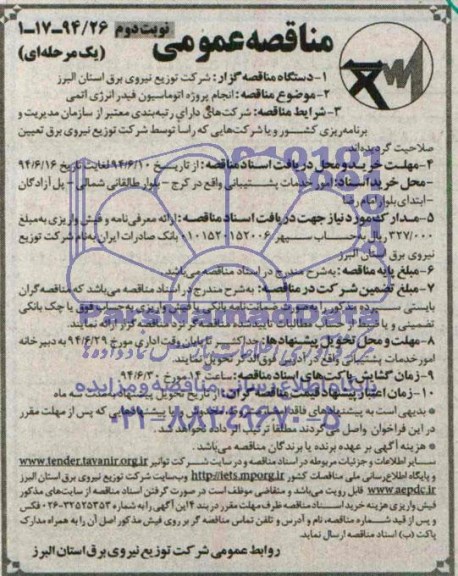 مناقصه عمومی
نوبت دوم
۱-۱۷-۹۴/۲۶
(یک مرحله‌ای)
۱-دستگاه مناقصه گزار: شرکت توزیع نیروی برق استان البرز
۲-موضوع مناقصه: انجام پروژه اتوماسیون فیدر انرژی اتمی
۳-شرایط مناقصه: شرکت‌های دارای رتبه‌بندی معتبر از سازمان مدیریت و
برنامه‌ریزی کشور و یا شرکت‌هایی که راسا توسط شرکت توزیع نیروی برق تعیین
صلاحیت گردیده‌اند
۴-مهلت خرید و محل دریافت اسناد مناقصه: از تاریخ ۹۴/۶/۱۰ لغایت تاریخ ۹۴/۶/۱۶
-محل خرید اسناد: امور خدمات پشتیبانی واقع در کرج - بلوار طالقانی شمالی - پل آزادگان
-ابتدای بلوار امام رضا
۵-مدارک مورد نیاز جهت دریافت اسناد مناقصه: ارائه معرفی‌نامه و فیش واریزی به مبلغ
۳۲۷/۰۰۰ ریال به حساب سپهر ۰۱۰۱۵۲۰۱۵۲۰۰۶ بانک صادرات ایران به نام شرکت توزیع
نیروی برق استان البرز
۶-مبلغ پایه مناقصه: به شرح مندرج در اسناد مناقصه می‌باشد.
۷-مبلغ تضمین شرکت در مناقصه: به شرح مندرج در اسناد مناقصه می‌باشد که مناقصه گران
بایستی سپرده مذکور را به صورت ضمانت‌نامه بانکی یا فیش واریزی به حساب فوق یا چک بانکی
تضمینی و یا از محل مطالبات تایید شده مناقصه گر نزد مناقصه گزار ارائه نمایند.
۸-مهلت و محل تحویل پیشنهادها: حداکثر تا پایان وقت اداری مورخ ۹۴/۶/۲۹ به دبیرخانه
امور خدمات پشتیبانی واقع در آدرس فوق‌الذکر تحویل نمایند.
۹-زمان گشایش پاکت‌های اسناد مناقصه: ساعت ۱۴ مورخ ۹۴/۶/۳۰
۱۰-زمان اعتبار پیشنهاد قیمت مناقصه گران: از تاریخ تحویل پیشنهاد به مدت سه ماه
* بدیهی است به پیشنهادهای فاقد امضا، مشروط، مخدوش و یا پیشنهادهایی که پس از مهلت مقرر
در این فراخوان واصل می‌گردند مطلقا ترتیب اثر داده نخواهد شد.
* هزینه آگهی بر عهده برنده یا برندگان مناقصه می‌باشد.
سایر اطلاعات و جزئیات مربوطه در اسناد مناقصه و در سایت شرکت توانیر www.tender.tavanir.org.ir
و پایگاه اطلاع‌رسانی ملی مناقصات کشور http://iets.mporg.ir وب‌سایت شرکت توزیع نیروی برق استان البرز
www.aepdc.ir قابل رویت می‌باشد و متقاضی موظف است در صورت گرفتن اسناد مناقصه از سایت‌های مذکور
فیش واریزی هزینه خرید اسناد مناقصه ظرف مهلت مقرر در بند ۴ این آگهی را به شماره ۳۲۵۲۵۳۵۳-۰۲۶ فکس
و پس از قید شماره مناقصه، نام و آدرس و تلفن تماس مناقصه گر بر روی فیش مذکور اصل آن را به همراه مدارک
پاکت (ب) اسناد مناقصه ارسال نماید.
روابط عمومی شرکت توزیع نیروی برق استان البرز
ParaNamadData
پایگاه اطلاع رسانی مناقصه و مزایده
۰۲۱-۸۸۳۴۹۶۷۰-۵